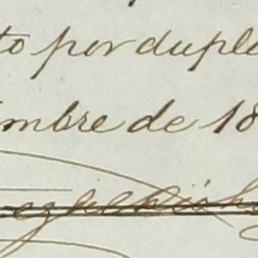 to por duplo
mbre de 18